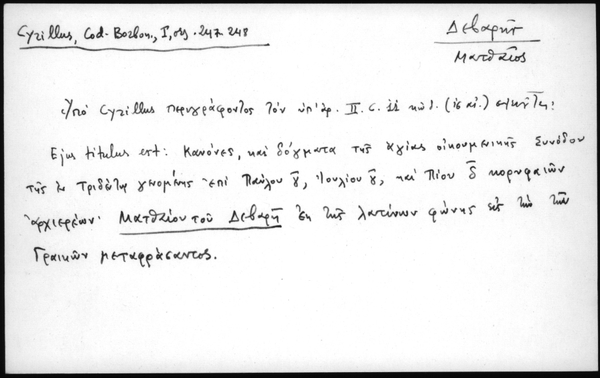 Cyrillus, Cod. Borbon., I, σελ. 247-248
Δεβαρῆς
Ματθαῖος
Ὑπό Cyrillus περιγράφοντος τόν ὑπ' ἀρ. II. C. κώδ. (ις αἰ.)
Ejus titulus est: Κανόνες, καὶ δόγματα τῆς ἁγίας οἰκουμενικῆς Συνόδου
τῆς ἐν Τριδέντῳ γενομένης ἐπὶ Παύλου γ̄, Ἰουλίου γ̄, καὶ Πίου δ̄ κορυφαιῶν
ἀρχιερέων· Ματθαίου τοῦ Δεβαρῆ ἐκ τῆς λατίνων φώνης εἰς τὴν τῶν
Γραικῶν μεταφράσαντος.